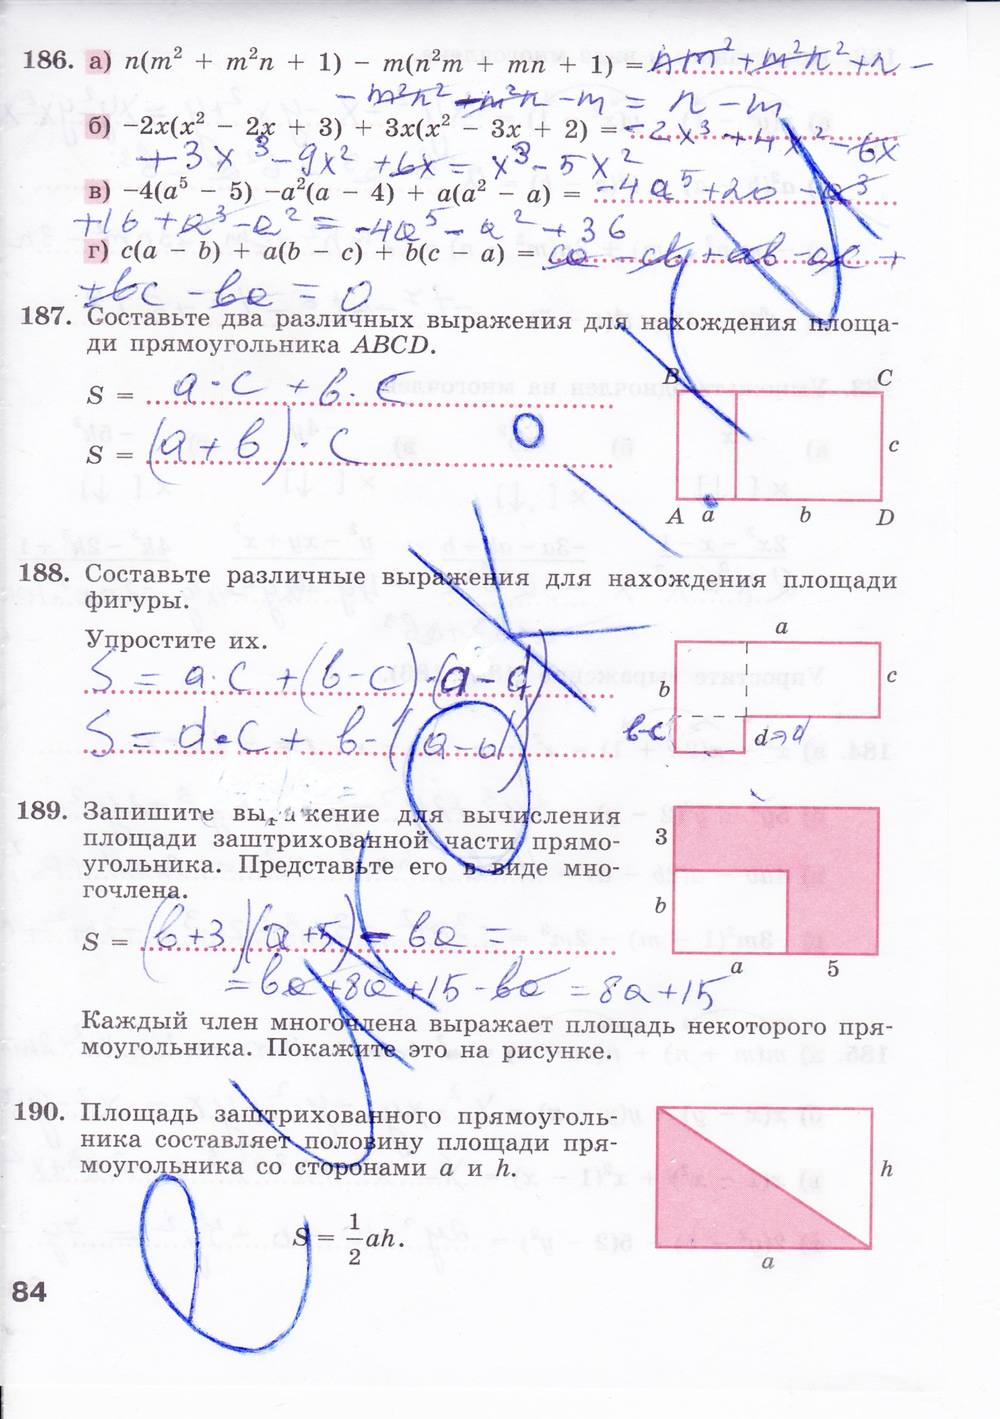 186. а) n(m² + m²n + 1) − m(n²m + mn + 1) = nm² + m²n² + n −
− m²n² − m²n − m = n − m
б) −2x(x² − 2x + 3) + 3x(x² − 3x + 2) = −2x³ + 4x² − 6x
+ 3x³ − 9x² + 6x = x³ − 5x²
в) −4(a⁵ − 5) −a²(a − 4) + a(a² − a) = −4a⁵ + 20 − a³
+16 + a³ − a² = −4a⁵ − a² + 36
г) c(a − b) + a(b − c) + b(c − a) = ca − cb + ab − ac +
+bc − ba = 0
187. Составьте два различных выражения для нахождения площа-
ди прямоугольника ABCD.
S = a·c + b·c
S = (a + b)·c
B C
c
A a b D
188. Составьте различные выражения для нахождения площади
фигуры.
Упростите их.
S = a·c + (b−c)·(a−d)
S = d·c + b·(a−d)
a
b c
b-c d
189. Запишите выражение для вычисления
площади заштрихованной части прямо-
угольника. Представьте его в виде мно-
гочлена.
S = (b+3)(a+5) − ba =
= ba + 8a + 15 − ba = 8a + 15
3
b
a 5
Каждый член многочлена выражает площадь некоторого пря-
моугольника. Покажите это на рисунке.
190. Площадь заштрихованного прямоуголь-
ника составляет половину площади пря-
моугольника со сторонами a и h.
S = 1/2 ah.
h
a
84